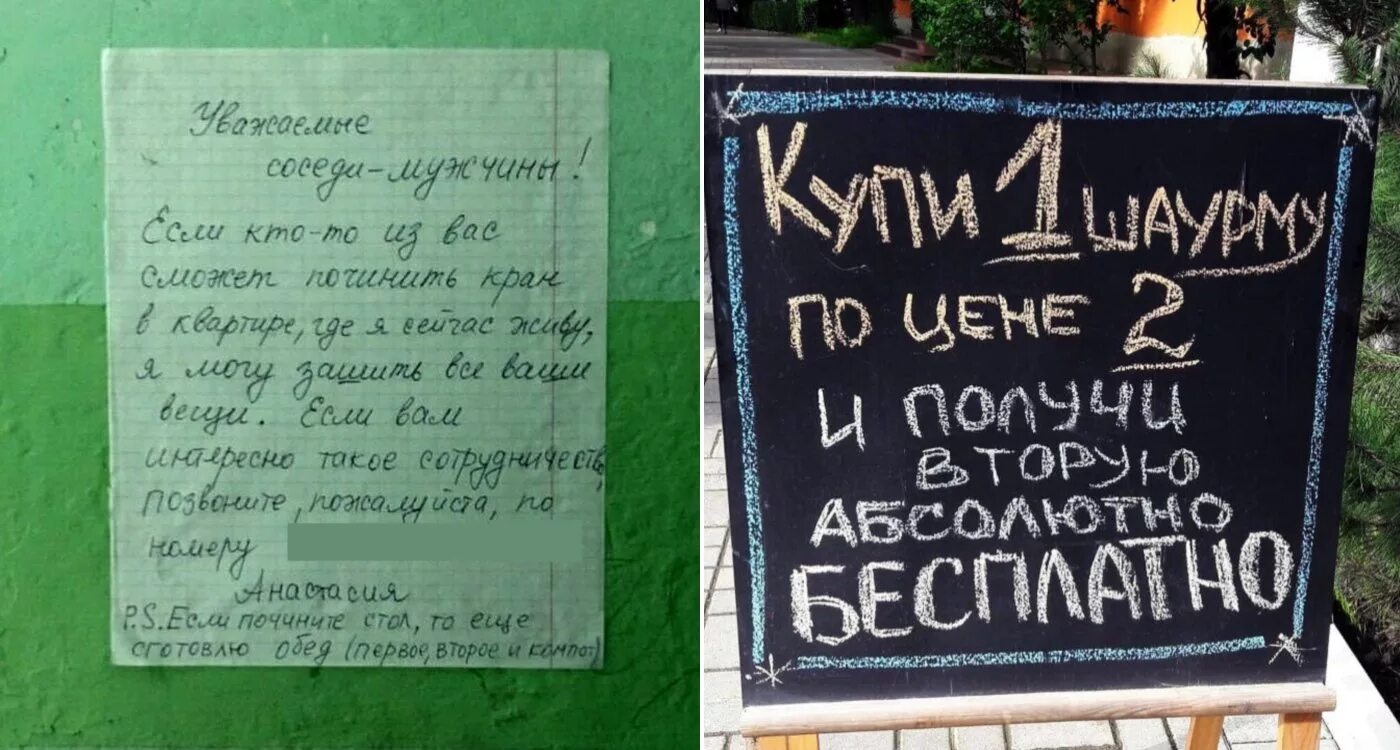 Уважаемые
соседи-мужчины!
Если кто-то из вас
сможет починить кран
в квартире, где я сейчас живу,
я могу зашить все ваши
вещи. Если вам
интересно такое сотрудничество,
позвоните, пожалуйста, по
номеру
Анастасия
P.S. Если почините стол, то еще
сготовлю обед (первое, второе и компот)
Купи 1 шаурму
по цене 2
и получи
вторую
абсолютно
БЕСПЛАТНО